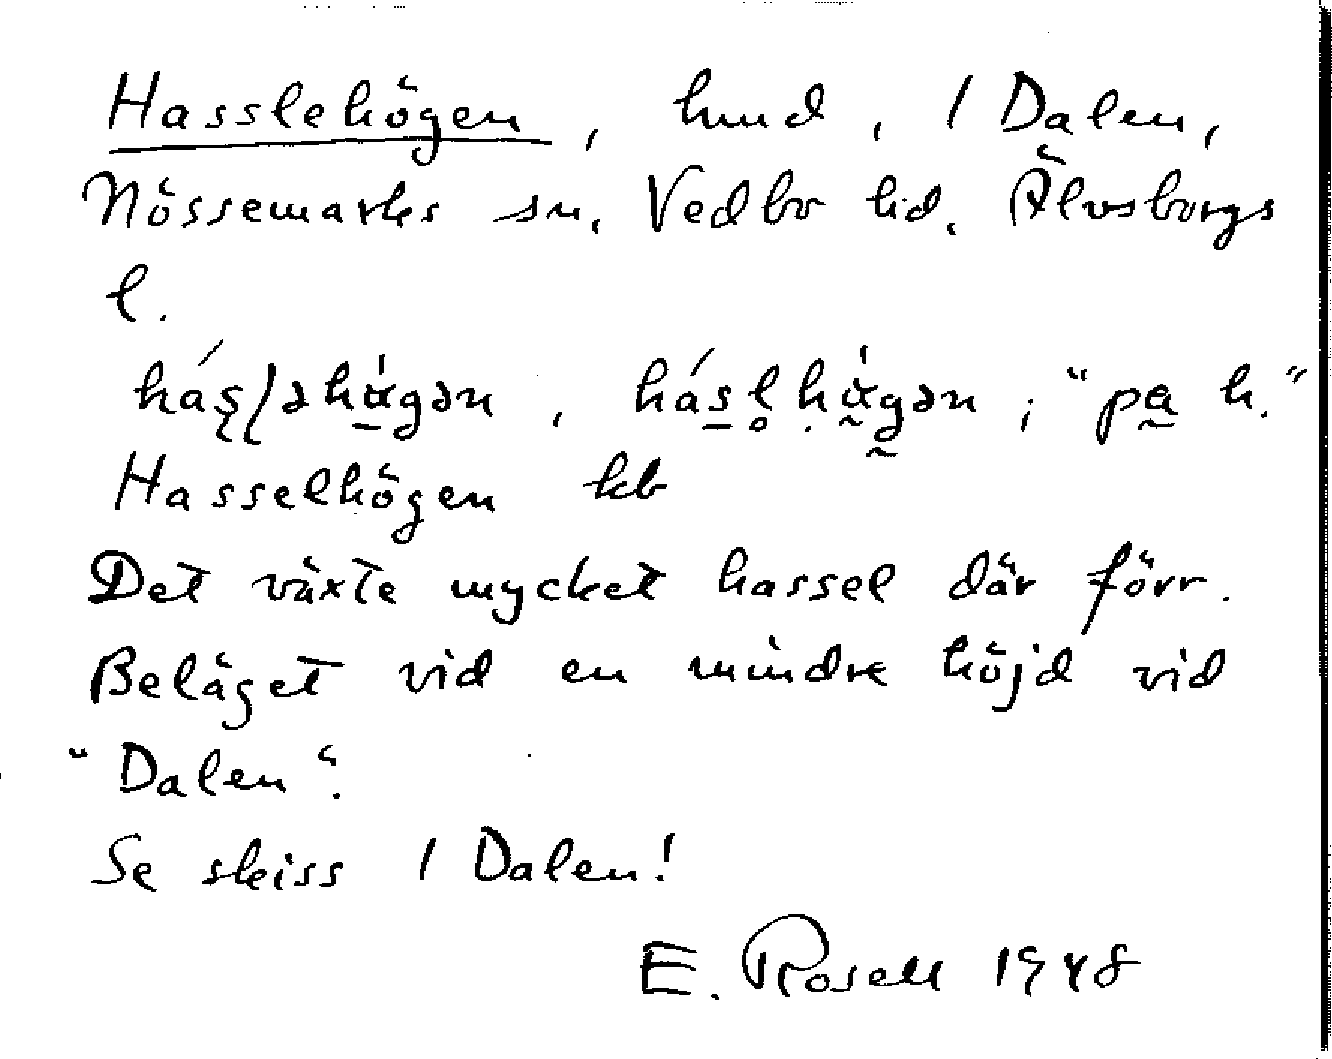 Hasslehögen, hmd, 1 Dalen,
Nössemarks sn. Vedbo hd. Älvsborgs
l.
"pa h."
Hasselhögen kb
Det växte mycket hassel där förr.
Beläget vid en mindre höjd vid
"Dalen".
Se skiss 1 Dalen!
E. Rosell 1948